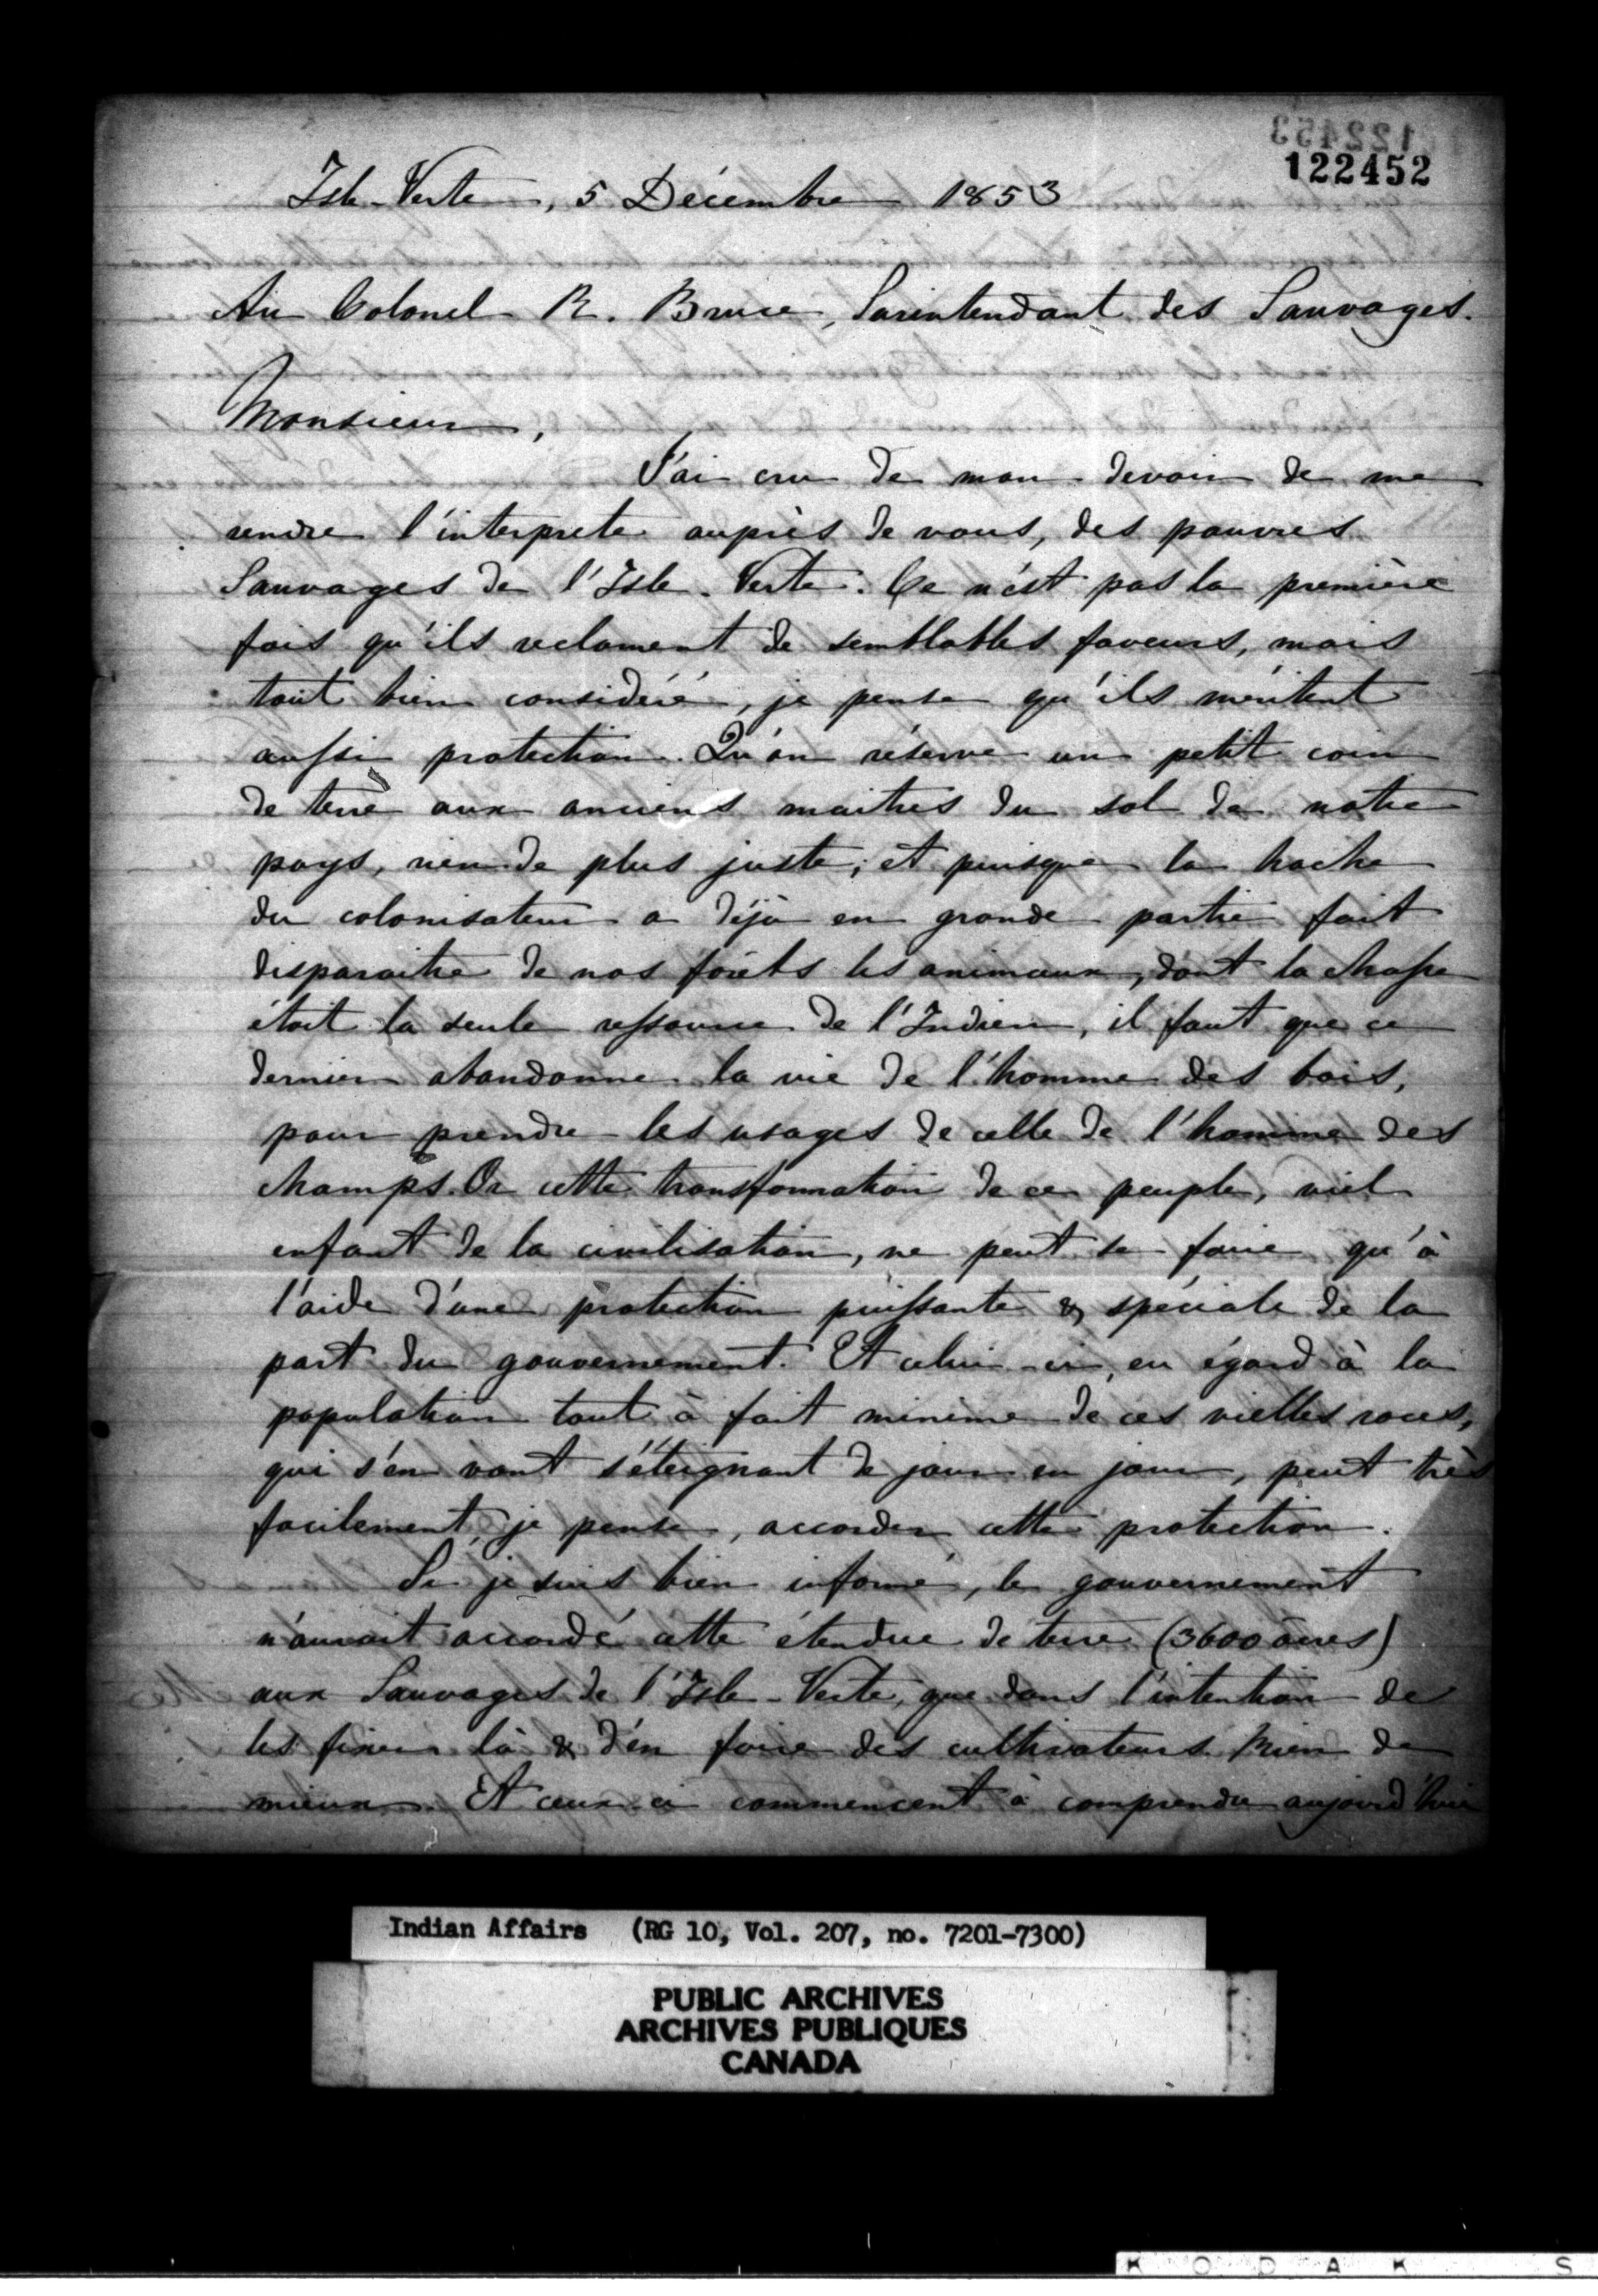 122453
122452
Isle-Verte, 5 Décembre 1853
Au Colonel R. Bruce, Surintendant des Sauvages.
Monsieur,
J'ai cru de mon devoir de me
rendre l'interprete auprès de vous, des pauvres
Sauvages de l'Isle-Verte. Ce n'est pas la première
fois qu'ils reclament de semblables faveurs, mais
tout bien considéré, je pense qu'ils méritent
aussi protection. Qu'on réserve un petit coin
de terre aux anciens maitres du sol de notre
pays, rien de plus juste; et puisque la hache
du colonisateur a déjà en grande partie fait
disparaitre de nos forêts les animaux, dont la chasse
était la seule ressource de l'Indien, il faut que ce
dernier abandonne la vie de l'homme des bois,
pour prendre les usages de celle de l'homme des
champs. Or cette transformation de ce peuple, viel
enfant de la civilisation, ne peut se faire qu'à
l'aide d'une protection puissante & spéciale de la
part du gouvernement. Et celui-ci, eu égard à la
population tout à fait minime de ces vielles races,
qui s'en vont s'éteignant de jour en jour, peut très
facilement, je pense, accorder cette protection.
Si je suis bien informé, le gouvernement
n'aurait accordé cette étendue de terre (3600 acres)
aux Sauvages de l'Isle-Verte, que dans l'intention de
les fixer là & d'en faire des cultivateurs. Rien de
mieux. Et ceux-ci commencent à comprendre aujourd'hui
Indian Affairs (RG 10, Vol. 207, no. 7201-7300)
PUBLIC ARCHIVES
ARCHIVES PUBLIQUES
CANADA
KODAK S